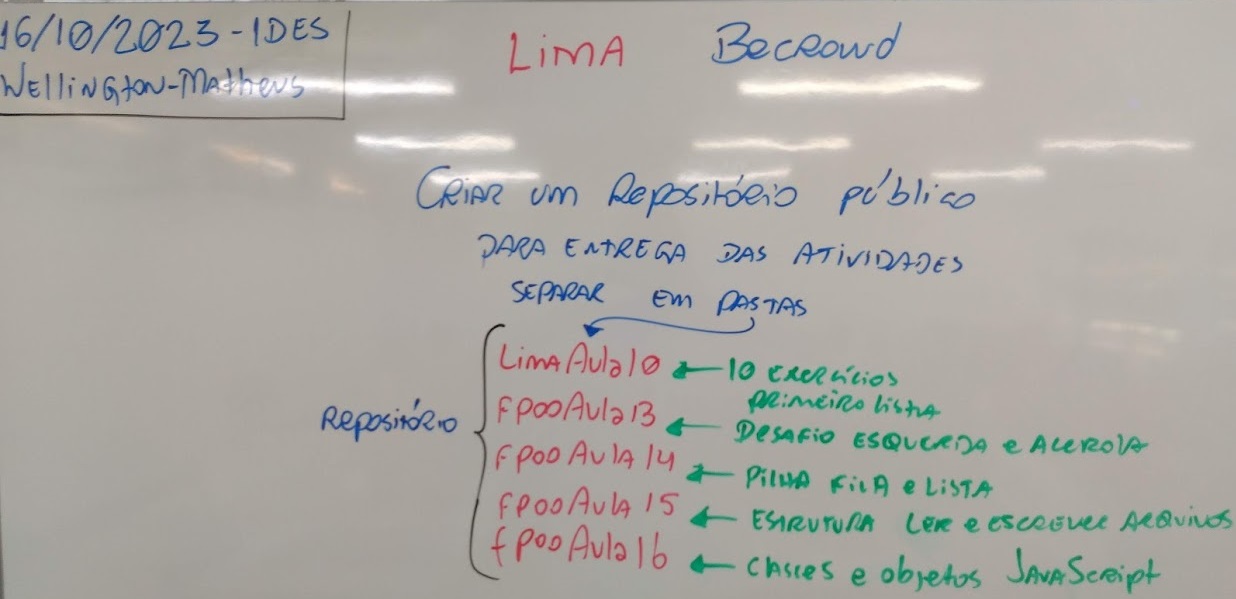 16/10/2023 - 1DES
Wellington-Matheus
LIMA Becrowd
Criar um Repositório público
para entrega das atividades
separar em pastas
Repositório
LimaAula10 ← 10 exercícios
primeiro lista
FPOOAula13 ← Desafio ESQUERDA e ACEROLA
FPOOAula14 ← Pilha Fila e Lista
FPOOAula15 ← Estrutura Ler e escrever Arquivos
fpooAula16 ← Classes e objetos JavaScript